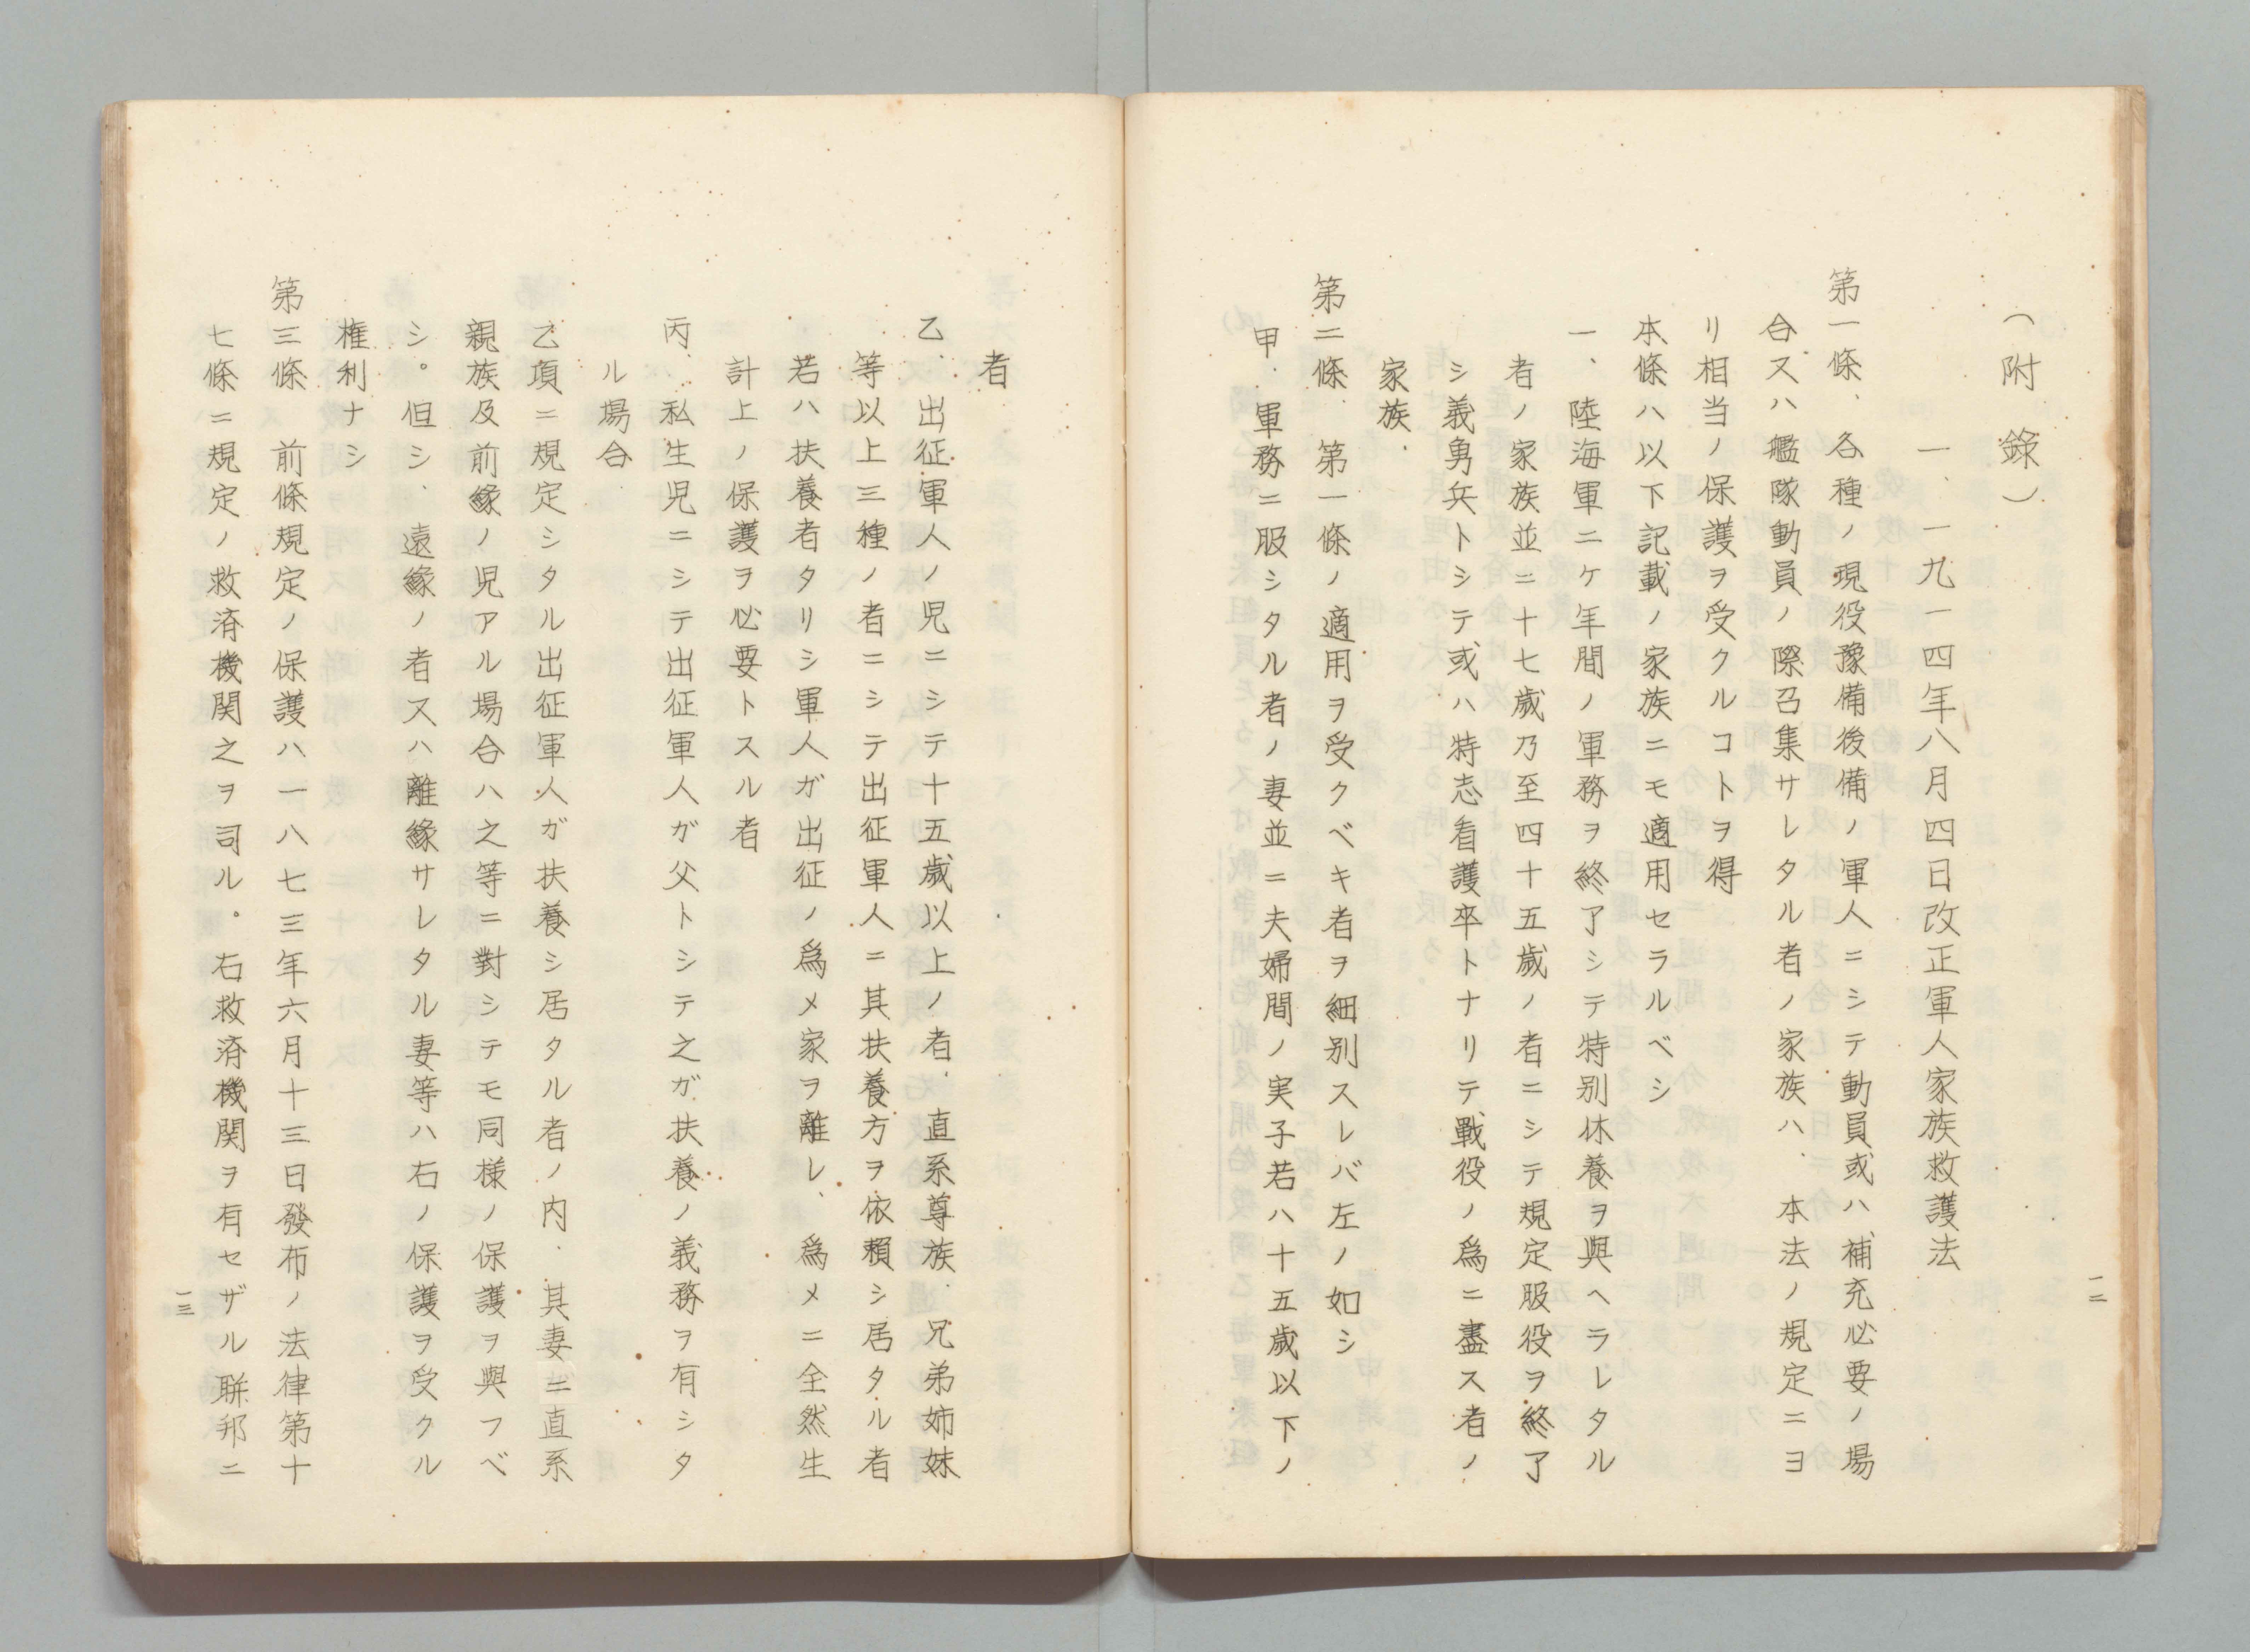 （附錄）
一、一九一四年八月四日改正軍人家族救護法
第一條、各種ノ現役豫備後備ノ軍人ニシテ動員或ハ補充必要ノ場
合又ハ艦隊動員ノ際召集サレタル者ノ家族ハ、本法ノ規定ニヨ
リ相当ノ保護ヲ受クルコトヲ得
本條ハ以下記載ノ家族ニモ適用セラルベシ
一、陸海軍ニケ年間ノ軍務ヲ終了シテ特別休養ヲ與ヘラレタル
者ノ家族並ニ十七歳乃至四十五歳ノ者ニシテ規定服役ヲ終了
シ義勇兵トシテ或ハ特志看護卒トナリテ戰役ノ爲ニ盡ス者ノ
家族．
第二條．第一條ノ適用ヲ受クベキ者ヲ細別スレバ左ノ如シ
甲．軍務ニ服シタル者ノ妻並ニ夫婦間ノ実子若ハ十五歳以下ノ
一二
者
乙．出征軍人ノ児ニシテ十五歳以上ノ者．直系尊族．兄弟姉妹
等以上三種ノ者ニシテ出征軍人ニ其扶養方ヲ依頼シ居タル者
若ハ扶養者タリシ軍人ガ出征ノ爲メ家ヲ離レ、爲メニ全然生
計上ノ保護ヲ必要トスル者
丙．私生児ニシテ出征軍人ガ父トシテ之ガ扶養ノ義務ヲ有シタ
ル場合
乙項ニ規定シタル出征軍人ガ扶養シ居タル者ノ内．其妻ニ直系
親族及前縁ノ児アル場合ハ之等ニ對シテモ同様ノ保護ヲ與フベ
シ。但シ．遠縁ノ者又ハ離縁サレタル妻等ハ右ノ保護ヲ受クル
権利ナシ
第三條　前條規定ノ保護ハ一八七三年六月十三日發布ノ法律第十
七條ニ規定ノ救済機関之ヲ司ル。右救済機関ヲ有セザル聯邦ニ
一三